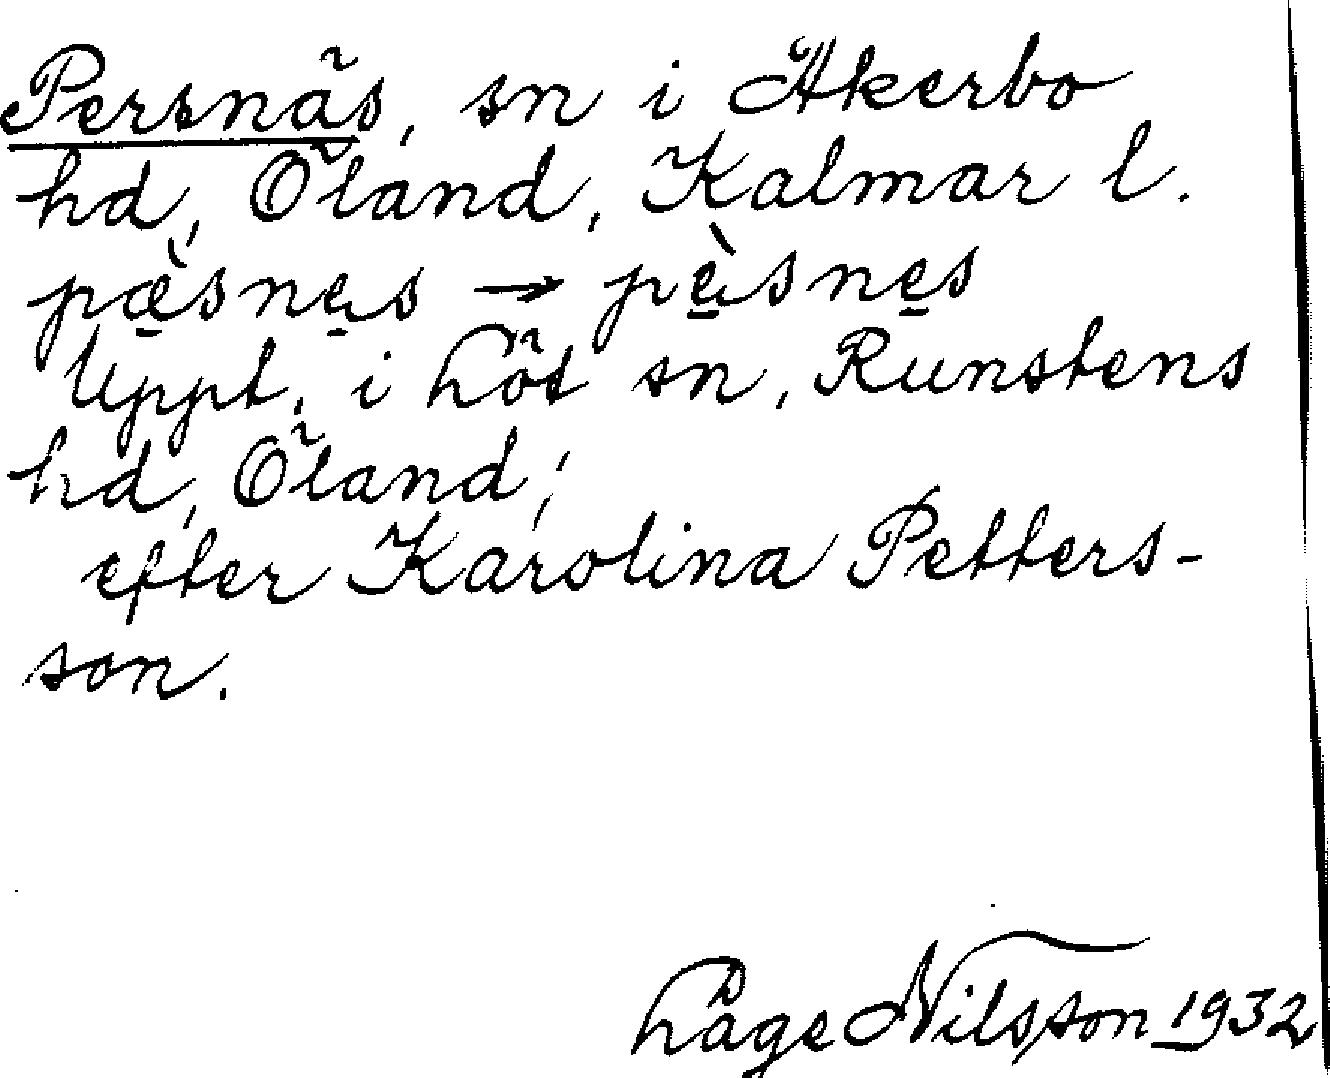 Persnäs, sn i Åkerbo
hd, Öland, Kalmar l.
pæ̠̀sne̠s → pè̠sne̠s
Uppt. i Löt sn, Runstens
hd, Öland;
efter Karolina Petters-
son.
Låge Nilsson 1932